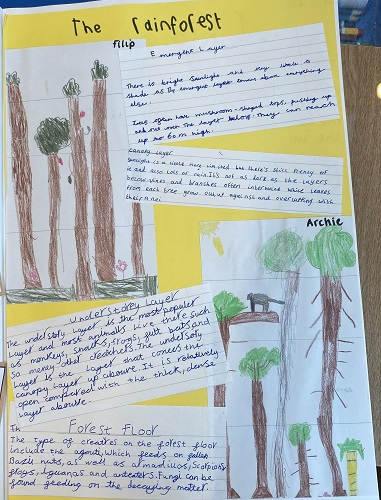 The rainforest
Filip
Emergent Layer
There is bright Sunlight and very little
shade as the emergent layer towers above everything
else.
Trees often have mushroom-shaped tops, pushing up
and out over the layer below. They can reach
up to 60m high.
canopy Layer
Sunlight is a little more limited but there's still plenty of
it and also lots of rain. It's not as dark as the layers
below. Vines and branches often intertwine while leaves
from each tree grow out
and overlapping with
their
Archie
Understorey Layer
The understory layer is the most populer
layer and most animals live there such
as monkeys, snakes, frogs, fruit bats and
So meny other creatchers. The understory
layer is the layer that comes the
canopy layer up above. It is relatively
open compared with the thick, dense
layer above.
Th
Forest Floor
The type of creatres on the forest floor
include the agouti, which feeds on fallen
Bazil nuts, as well as armadillos, Scorpions
frogs, iguanas and anteaters. Fungi can be
found feeding on the decaying matter.